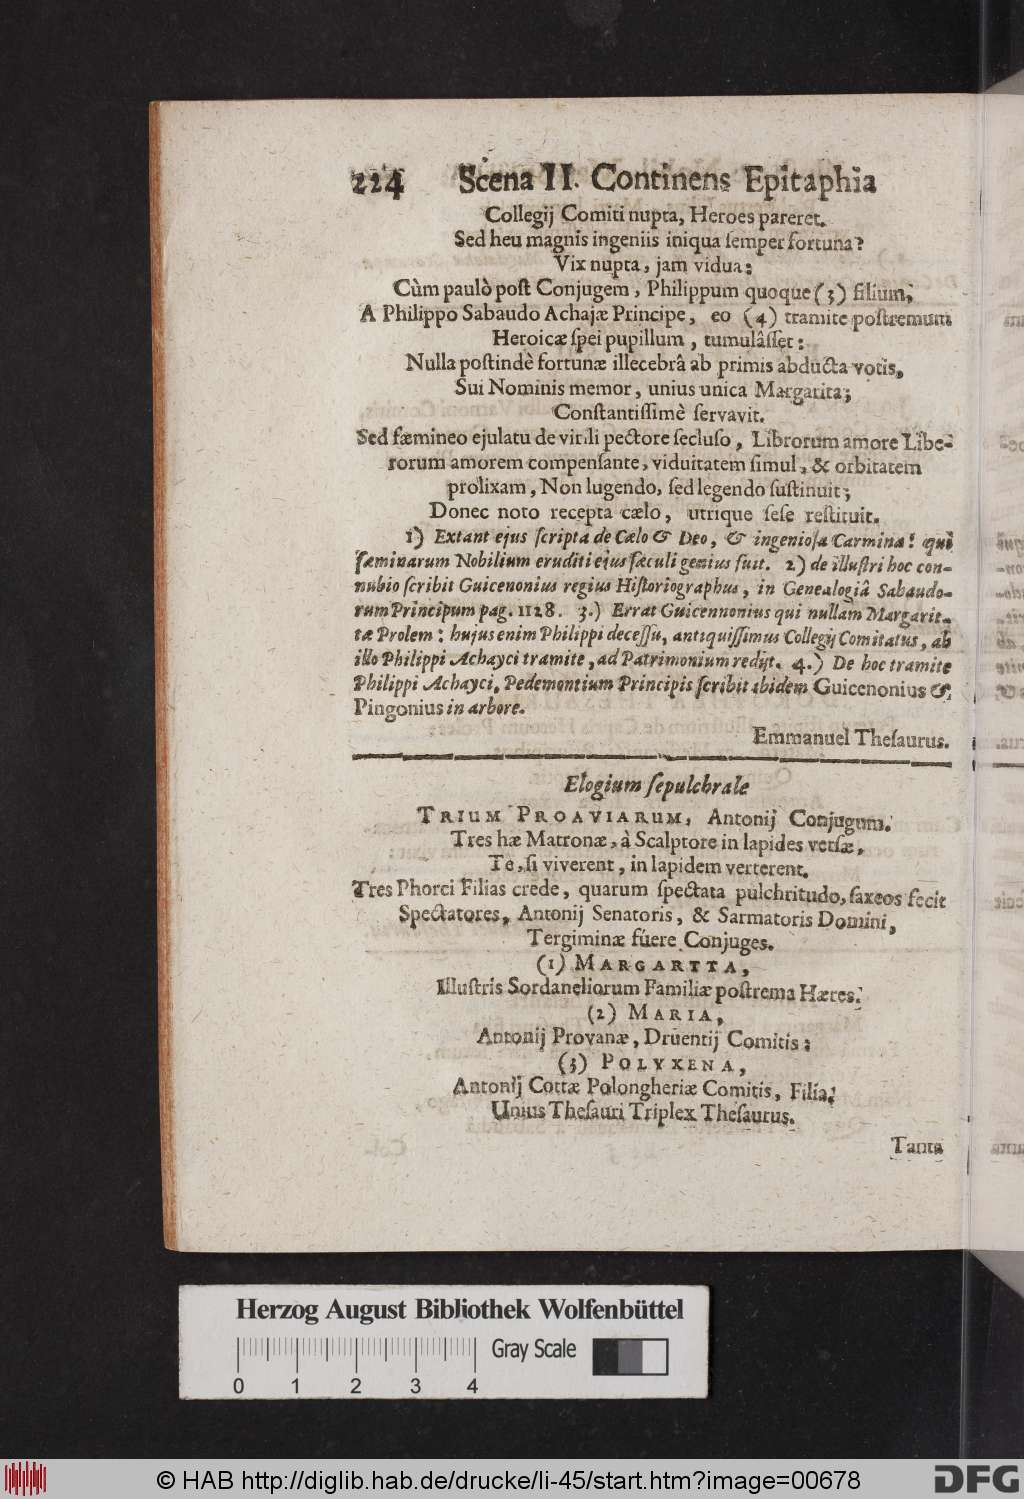 224 Scena II. Continens Epitaphia
Collegij Comiti nupta, Heroes pareret.
Sed heu magnis ingeniis iniqua ſemper fortuna?
Vix nupta, jam vidua:
Cùm paulò poſt Conjugem, Philippum quoque (3) filium;
A Philippo Sabaudo Achajæ Principe, eo (4) tramite poſtremum
Heroicæ ſpei pupillum, tumulâſſet:
Nulla poſtindè fortunæ illecebrâ ab primis abducta votis,
Sui Nominis memor, unius unica Margarita;
Conſtantiſſimè ſervavit.
Sed fæmineo ejulatu de virili pectore ſecluſo, Librorum amore Libe-
rorum amorem compenſante, viduitatem ſimul, & orbitatem
prolixam, Non lugendo, ſed legendo ſuſtinuit;
Donec noto recepta cælo, utrique ſeſe reſtituit.
1) Extant ejus ſcripta de Cælo & Deo, & ingenioſa Carmina: qui
fæminarum Nobilium eruditi ejus ſæculi genius fuit. 2) de illuſtri hoc con-
nubio ſcribit Guicenonius regius Hiſtoriographus, in Genealogiâ Sabaudo-
rum Principum pag. 1128. 3.) Errat Guicennonius qui nullam Margarit-
tæ Prolem: hujus enim Philippi deceſſu, antiquiſſimus Collegij Comitatus, ab
illo Philippi Achayci tramite, ad Patrimonium redijt. 4.) De hoc tramite
Philippi Achayci, Pedemontium Principis ſcribit ibidem Guicenonius &
Pingonius in arbore.
Emmanuel Theſaurus.
Elogium ſepulchrale
TRIUM PROAVIARUM, Antonij Conjugum.
Tres hæ Matronæ, à Scalptore in lapides verſæ,
Te, ſi viverent, in lapidem verterent.
Tres Phorci Filias crede, quarum ſpectata pulchritudo, ſaxeos fecit
Spectatores, Antonij Senatoris, & Sarmatoris Domini,
Tergiminæ fuere Conjuges.
(1) MARGARTTA,
Illuſtris Sordaneliorum Familiæ poſtrema Hæres:
(2) MARIA,
Antonij Provanæ, Druentij Comitis:
(3) POLYXENA,
Antonij Cottæ Polongheriæ Comitis, Filia:
Unius Theſauri Triplex Theſaurus.
Tanta
Herzog August Bibliothek Wolfenbüttel
Gray Scale
0 1 2 3 4
© HAB http://diglib.hab.de/drucke/li-45/start.htm?image=00678
DFG